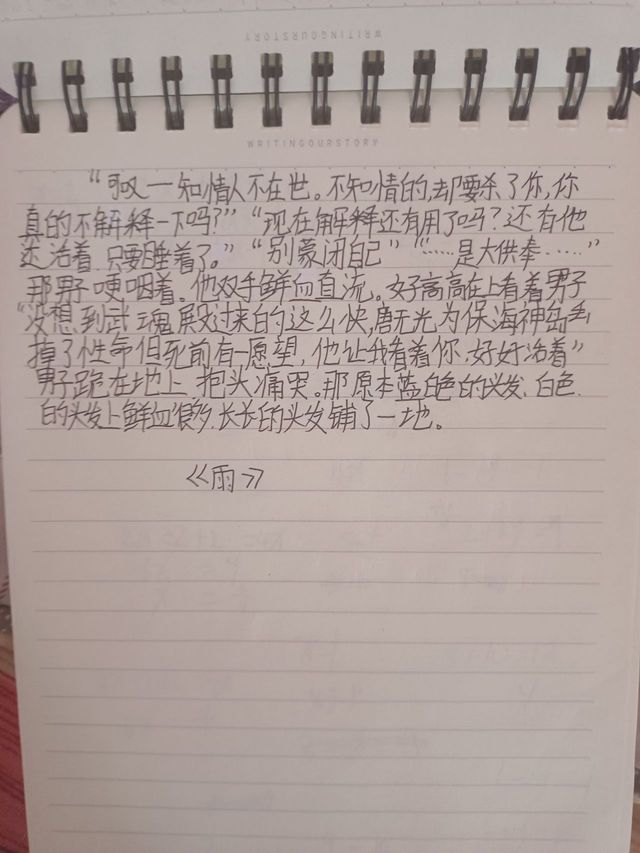 WRITINGOURSTORY
WRITINGOURSTORY
“可叹一知情人不在世。不知情的,却要杀了你,你
真的不解释一下吗?”“现在解释还有用了吗?还有他
还活着.只要睡着了。”“别蒙闭自己”“……是大供奉……”
那男子哽咽着.他双手鲜血直流。女子高高在上看着男子
“没想到武魂殿过来的这么快,唐无光为保海神岛丢
掉了性命但死前有一愿望,他让我看着你.好好活着”
男子跪在地上.抱头痛哭。那原本蓝白色的头发、白色.
的头发上鲜血很多.长长的头发铺了一地。
《雨》